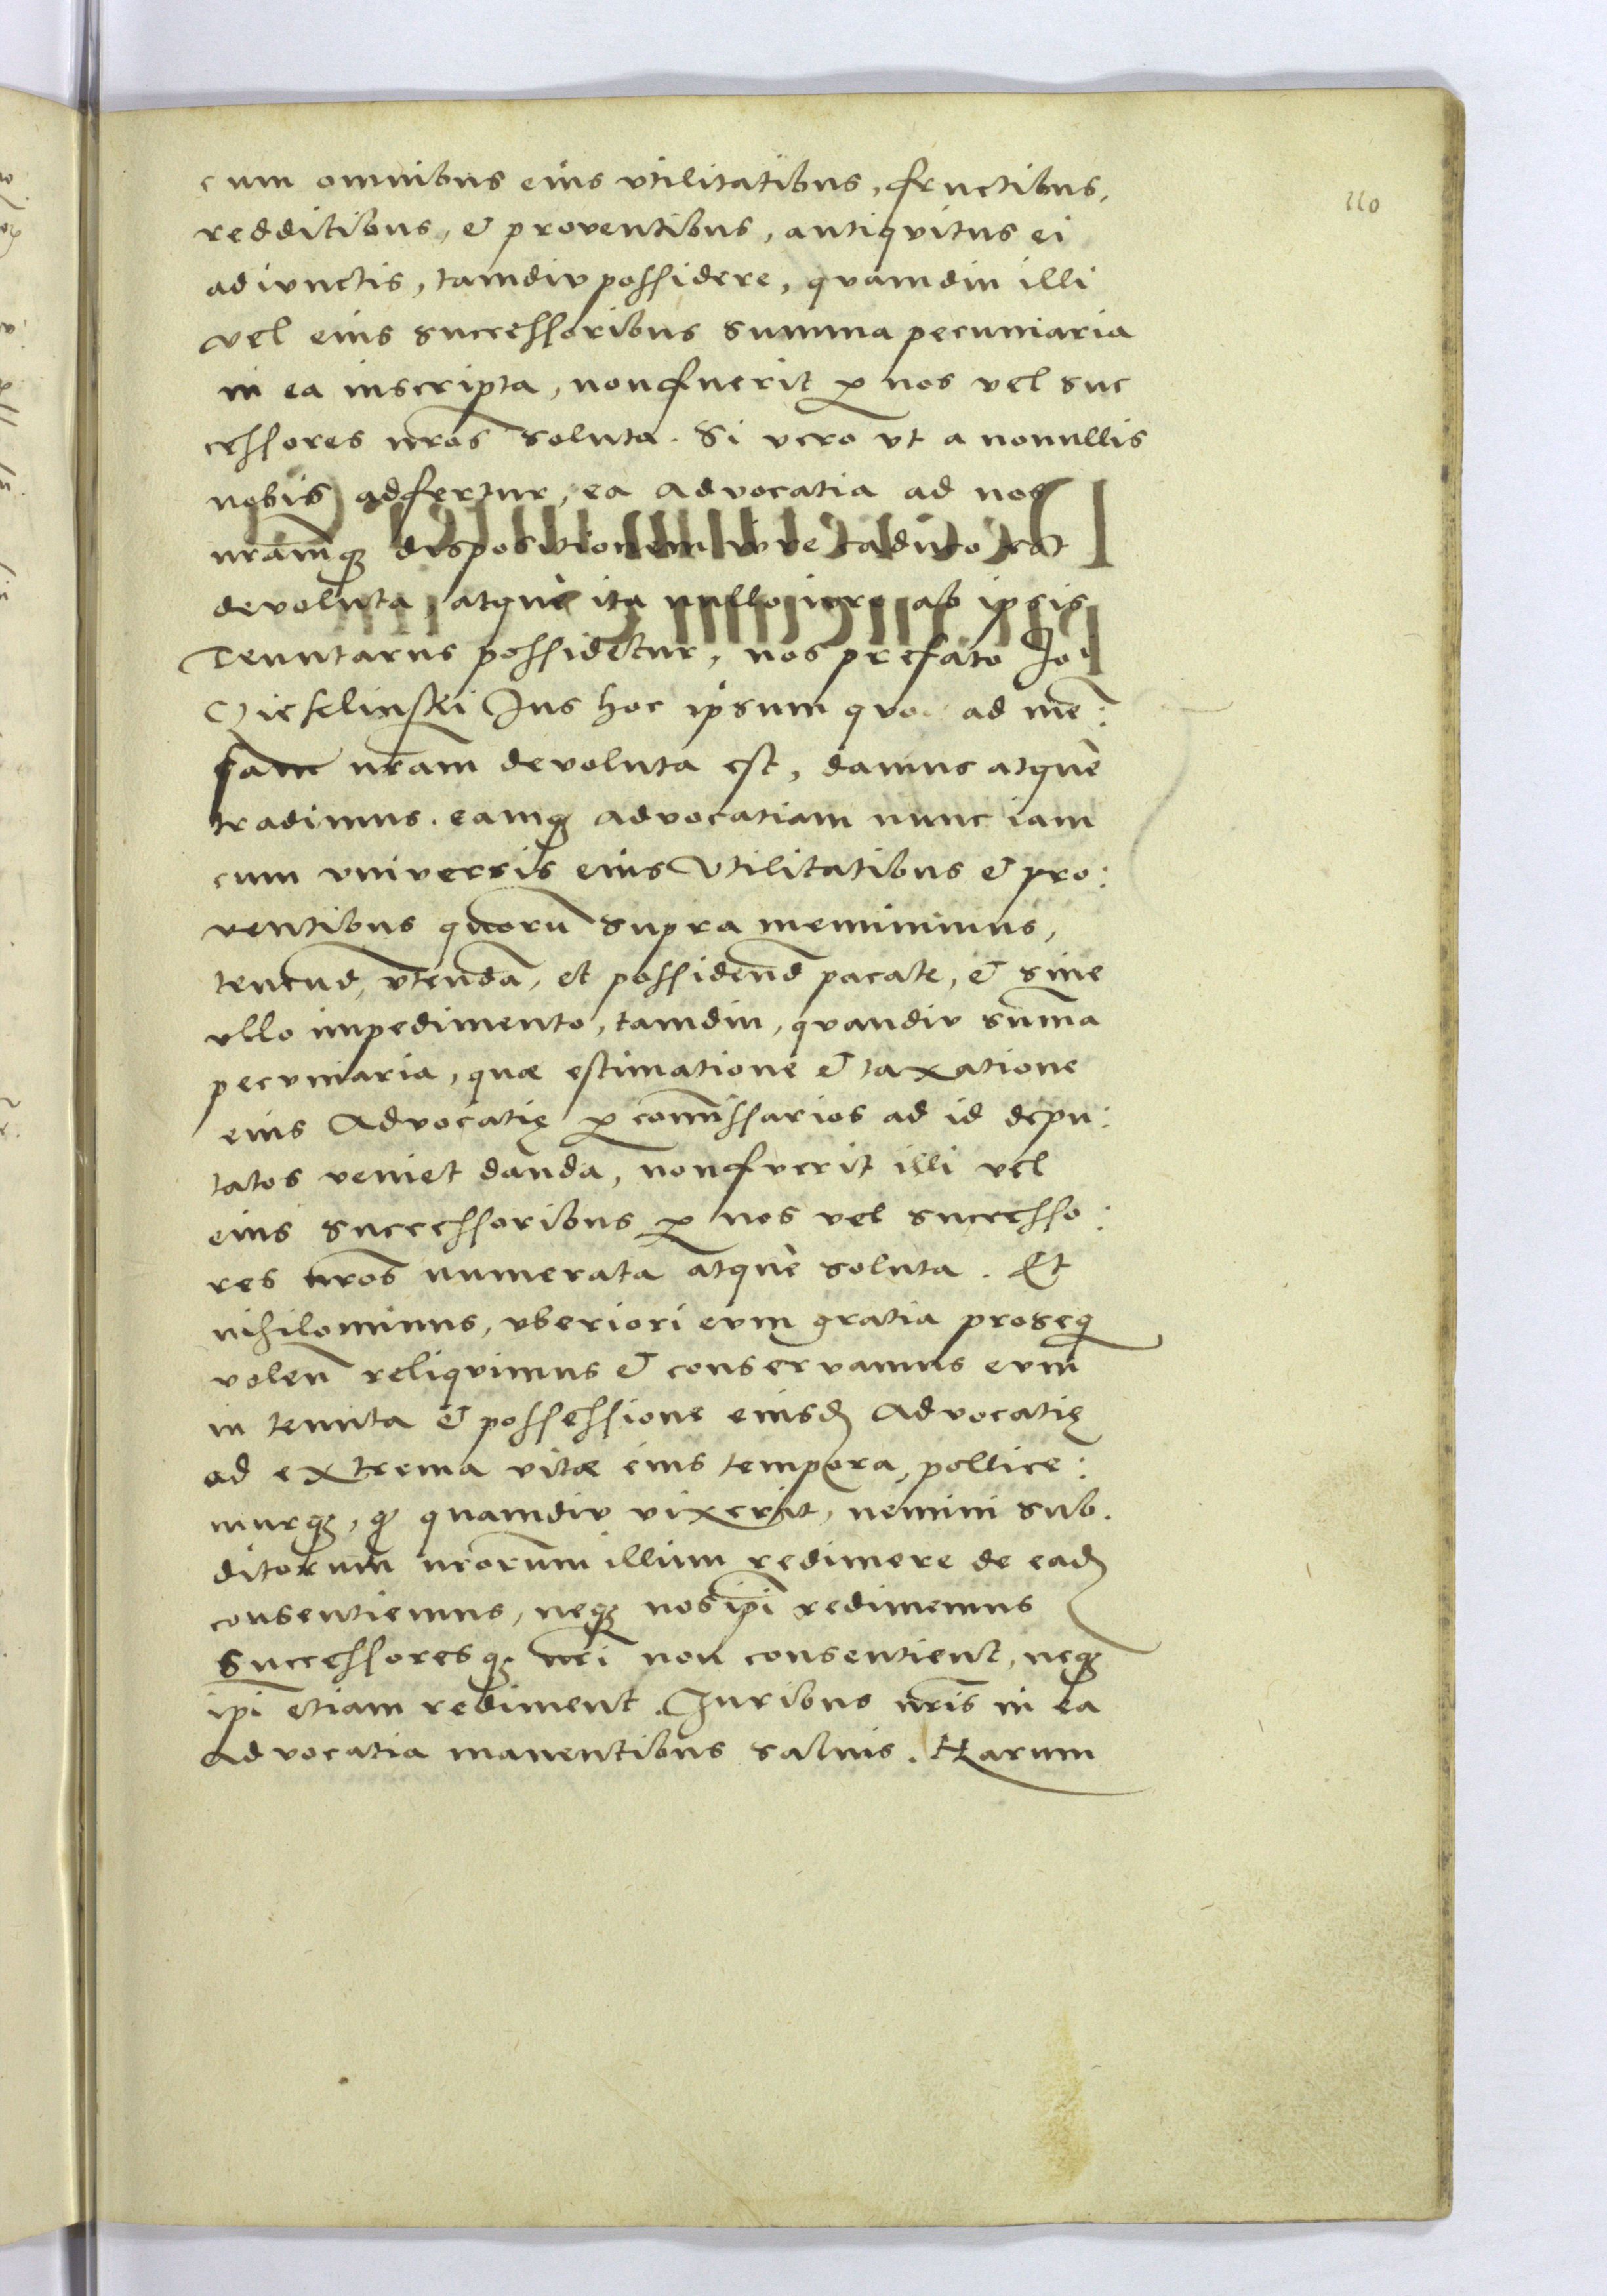 110
cum omnibus eius vtilitatibus, fructibus,
redditibus, & proventibus, antiqvitus ei
adivnctis, tamdiv possidere, qvamdiu illi
vel eius successoribus summa pecuniaria
in ea inscripta, non fuerit ꝑ nos vel suc
cessores nr̃os soluta. Si vero vt a nonullis
nobis adfertur, ea advocatia ad nos
nram̃qꝫ dispositionem ivre caduco est
devoluta, atquè ita nullo iure ab ipsis
Tenutarus possidetur, nos prefato Joi
Mieselinski Jus hoc ipsum qvo ad me:
sam nr̃am devoluta est, damus atquè
tradimus. eamqꝫ advocatiam nunc iam
cum vniversis eius Vtilitatibus & pro:
ventibus quorũ supra meminimus,
tenend̃, vtendã, et possidend̃ pacate, & sine
vllo impedimento, tamdiu, qvandiv sum̃a
pecvniaria, quæ estimatione & taxatione
eius Advocatię ꝑ com̃issarios ad id depu:
tatos veniet danda, non fverit illi vel
eius successoribus ꝑ nos vel successo:
res nr̃os numerata atquè soluta. Et
nihilominus, vberiori evm gratia proseqꝫ
volen̄ reliqvimus & conservamus evm̃
in tenuta & possessione eiusđ Advocatię
ad extrema vitæ eius tempora, pollice:
murqꝫ, qꝫ quamdiv vixerit, nemini sub.
ditorum nr̃orum illum redimere de eađ
consentiemus, neqꝫ nos ip̃i redimemus
Successoresqꝫ nr̃i non consentient, neqꝫ
ip̃i etiam rediment. Juribus nr̃is in ea
Advocatia manentibus salvis. Harum